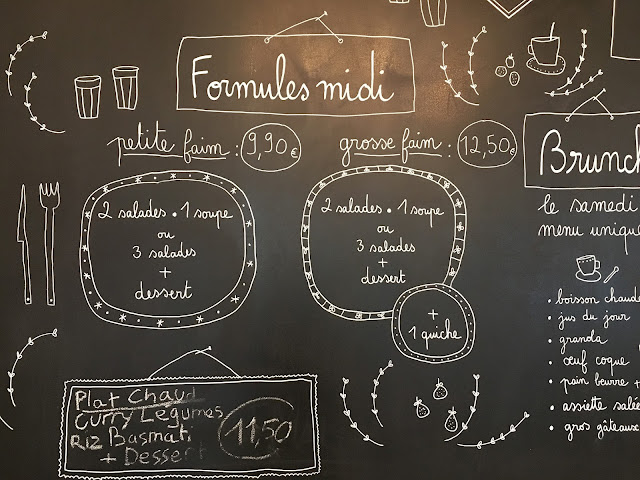 Formules midi
petite faim : 9,90€
2 salades • 1 soupe
ou
3 salades
+
dessert
grosse faim : 12,50€
2 salades • 1 soupe
ou
3 salades
+
dessert
+
1 quiche
Plat Chaud
Curry Légumes
Riz Basmati
+ Dessert
11,50
Brunch
le samedi
menu unique
• boisson chaude
• jus du jour
• granola
• œuf coque
• pain beurre +
• assiette salé
• gros gâteaux